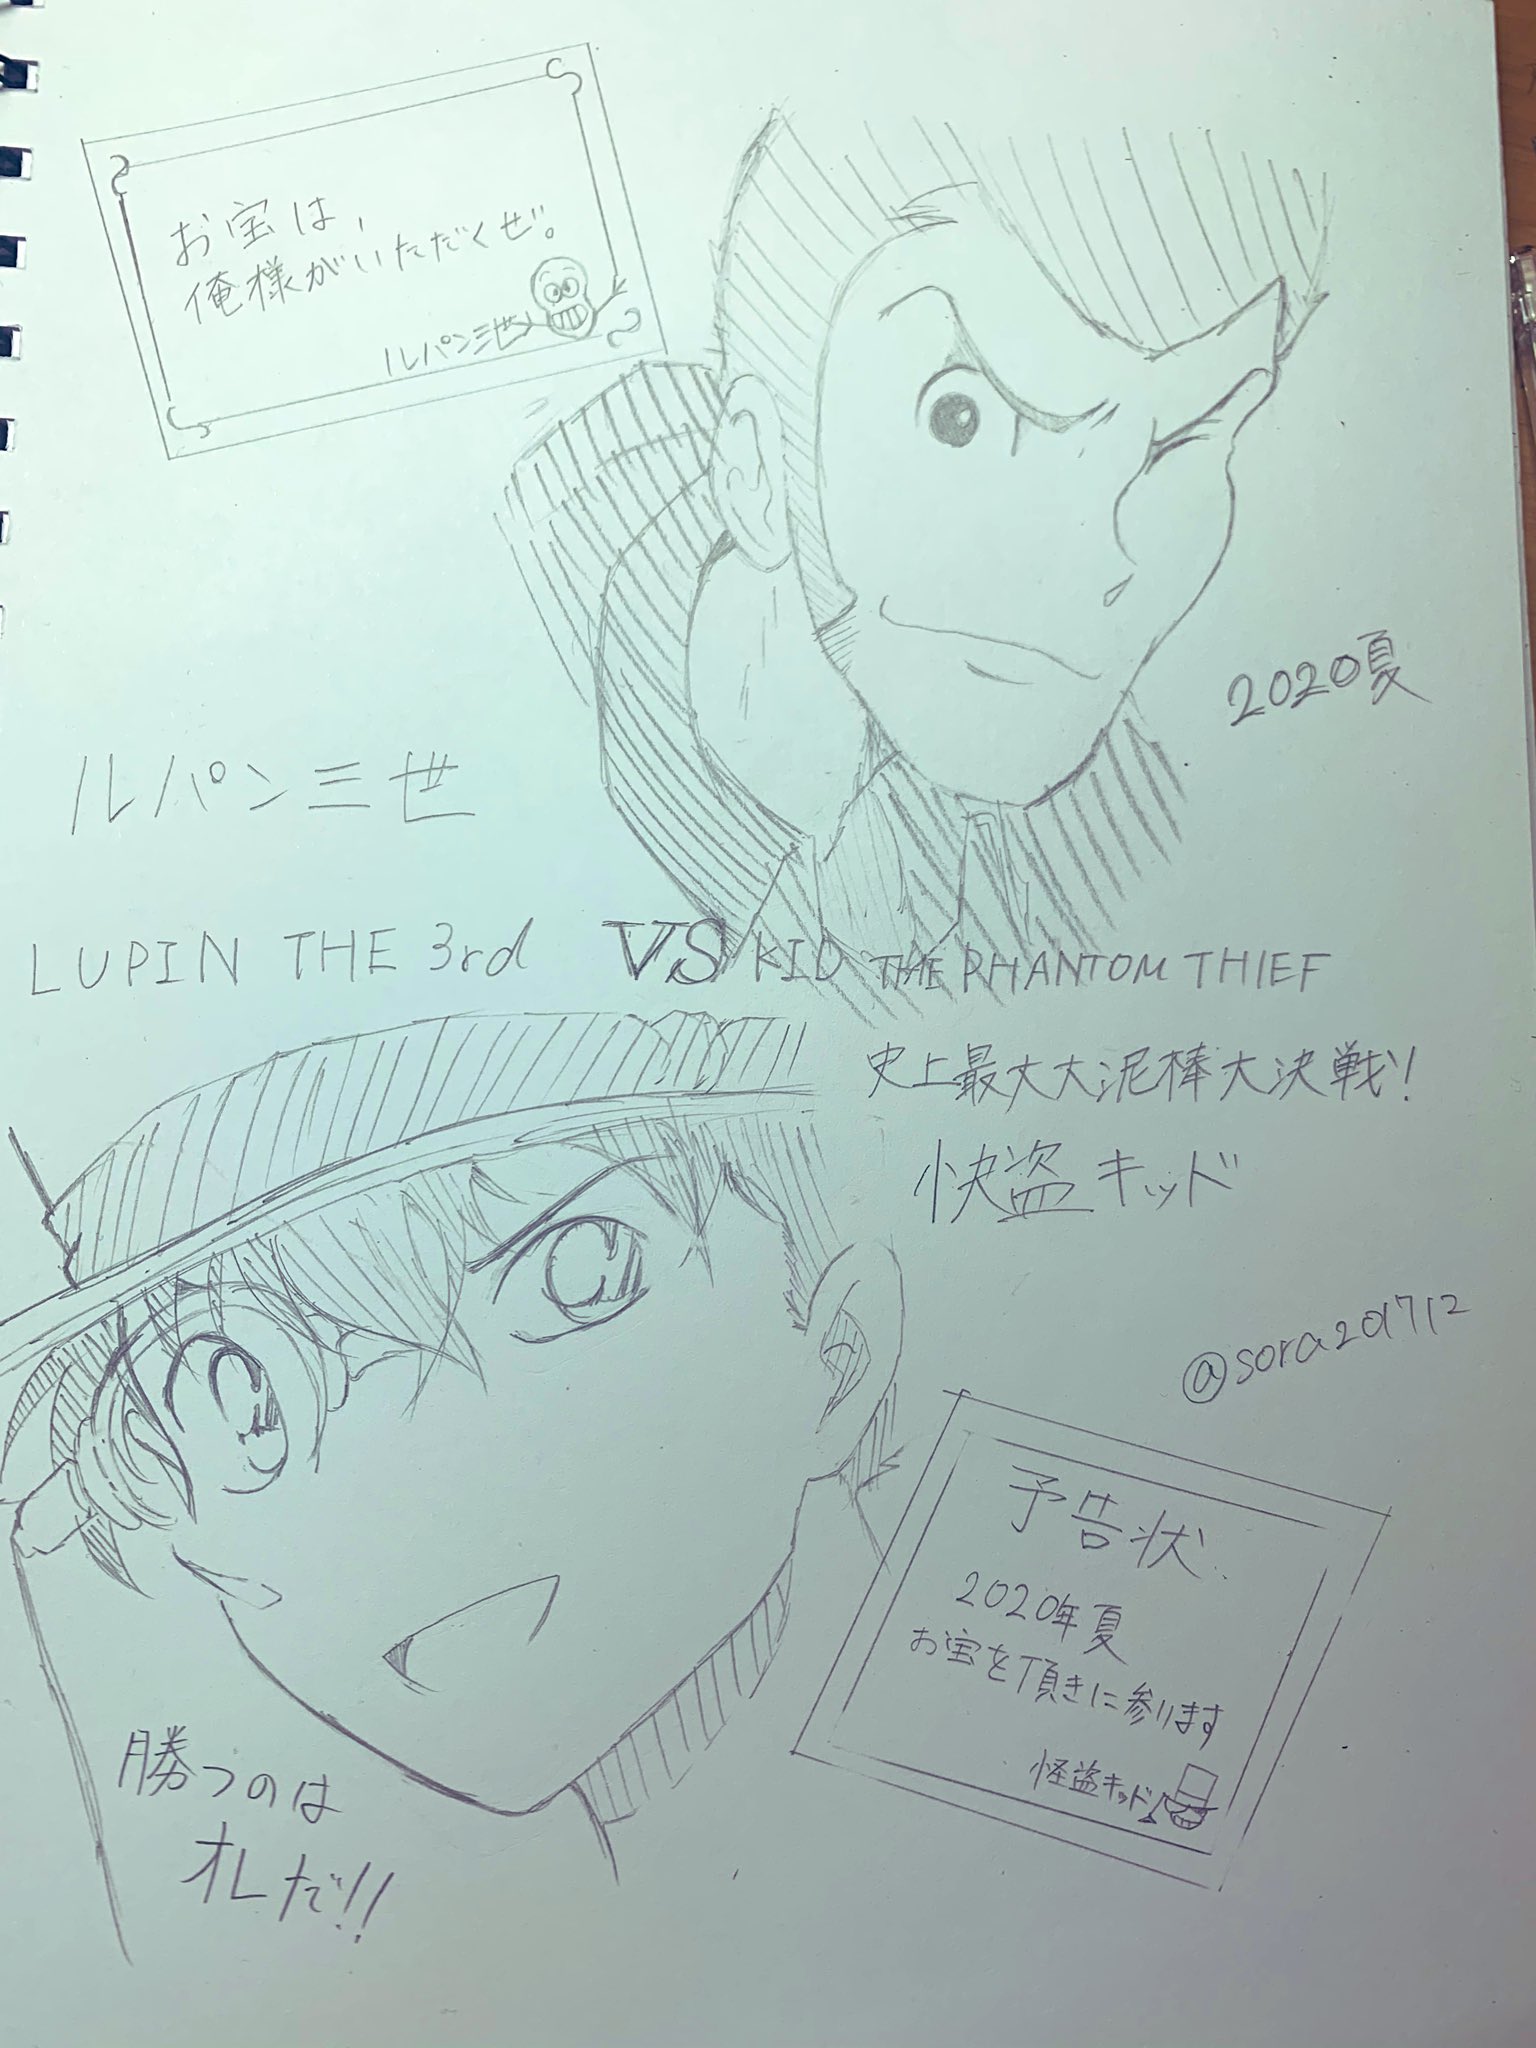 お宝は、
俺様がいただくぜ。
ルパン三世
2020夏
ルパン三世
LUPIN THE 3rd VS KID THE PHANTOM THIEF
史上最大大泥棒大決戦!
怪盗キッド
@sora201712
予告状
2020年夏
お宝を頂きに参ります
怪盗キッド
勝つのは
オレだ!!